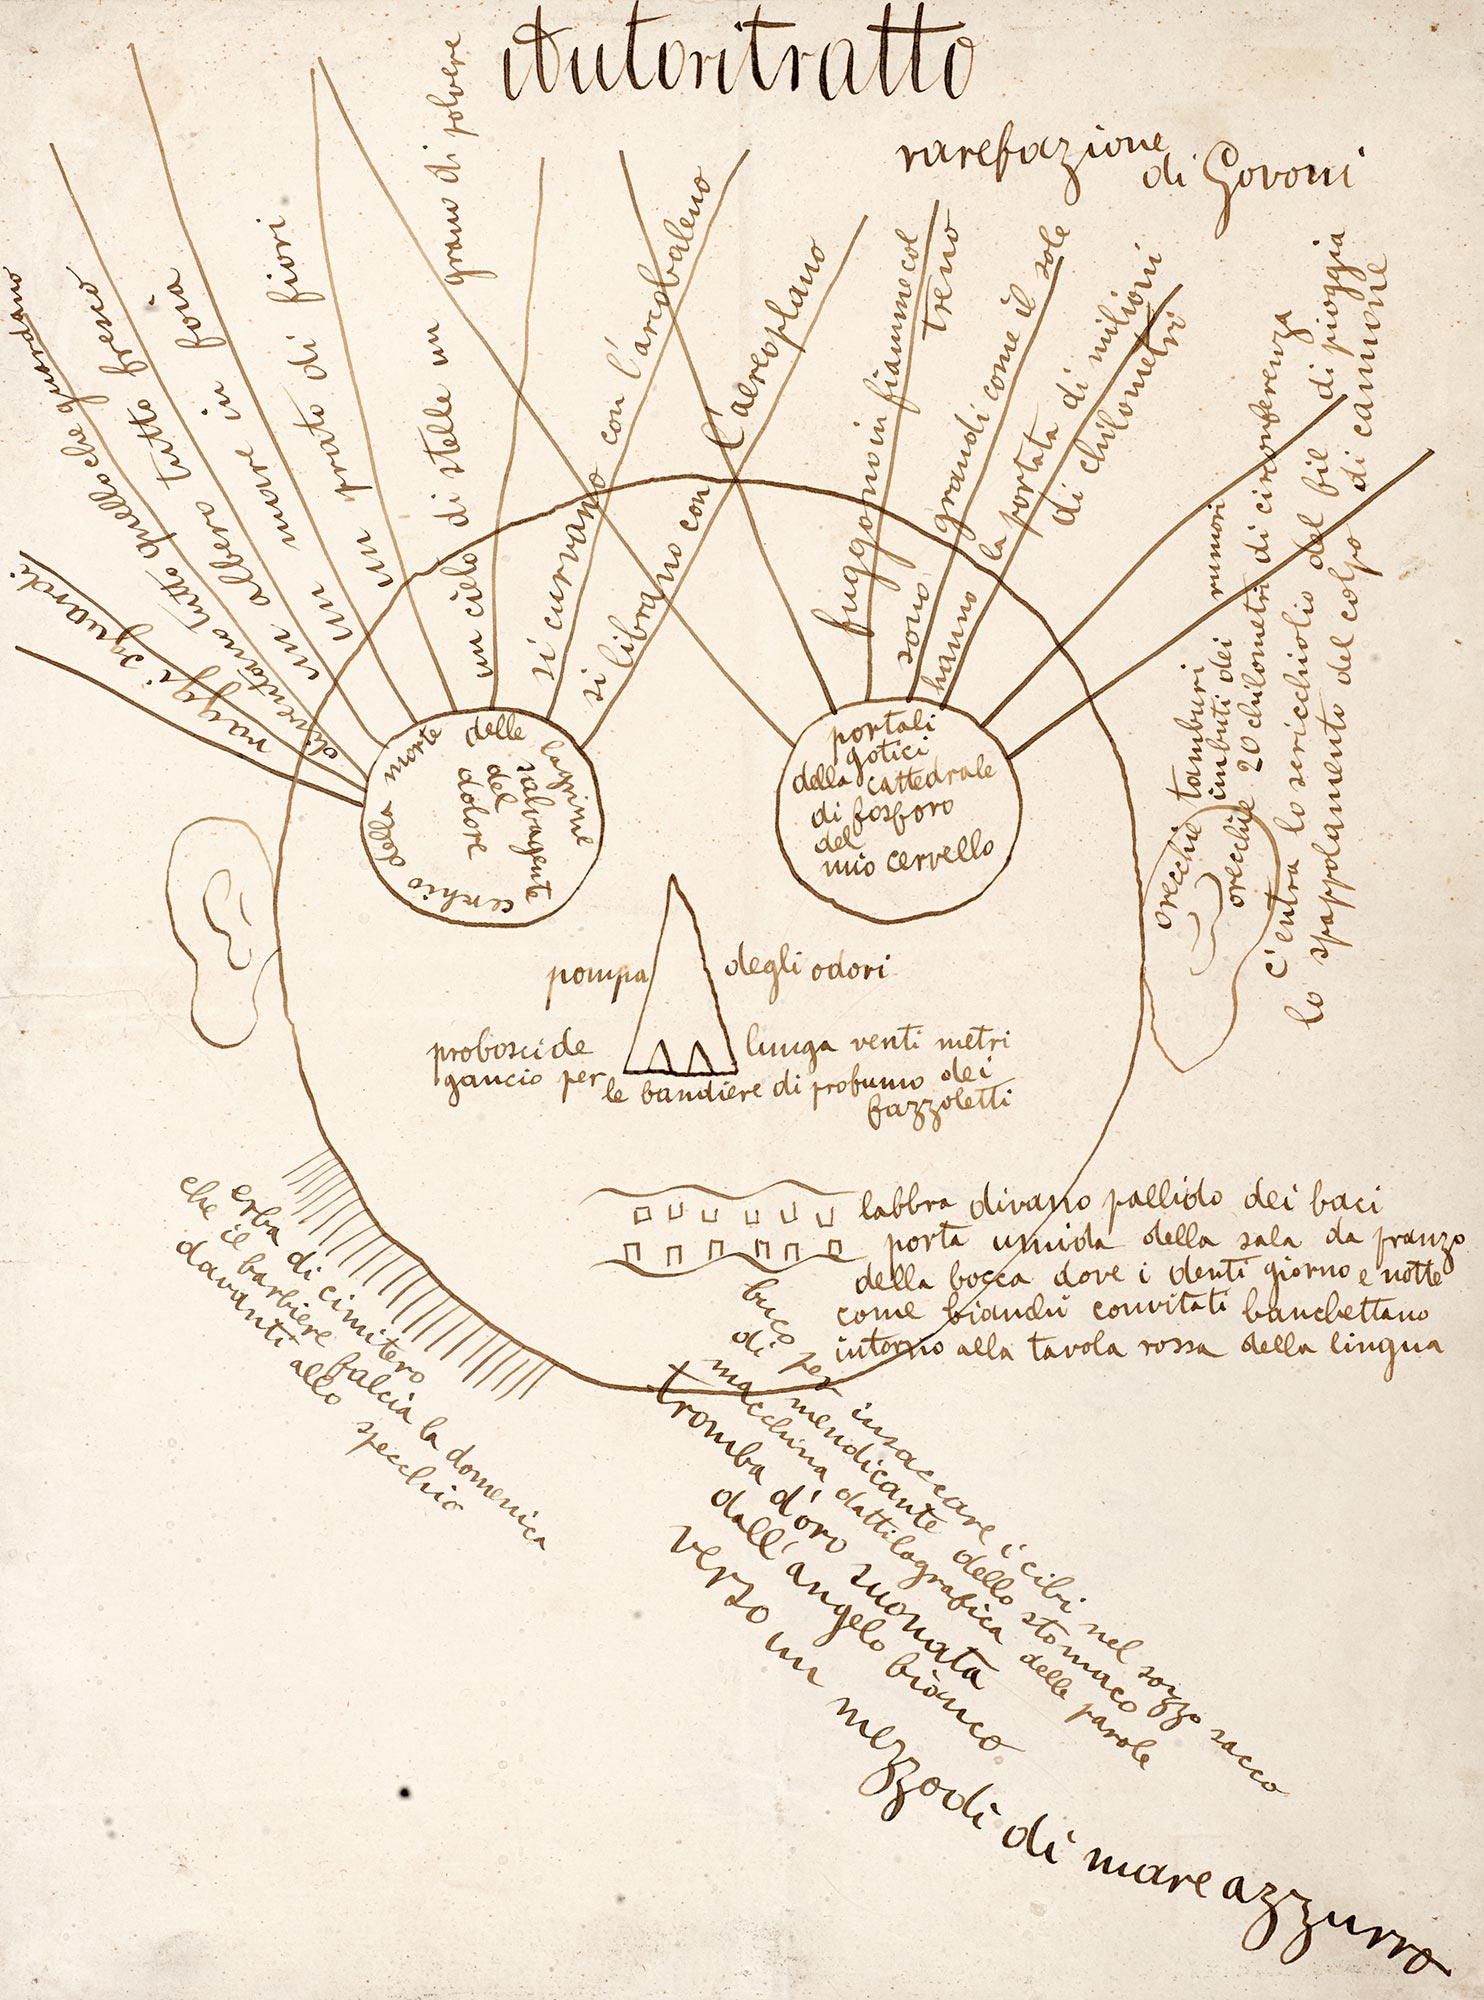 Autoritratto
rarefazione
di Govoni
raggi sguardi
diventano tutto quello che guardano
un albero tutto fresco
un nuore in foia
un prato di fiori
un cielo di stelle un grano di polvere
si curvano con l'arcobaleno
si librano con l'aereoplano
fuggono in fiamme col
treno
sono grandi come il sole
hanno la portata di milioni
di chilometri
cerchio della morte delle lagrime
salvagente
del
dolore
portali
gotici
della cattedrale
di fosforo
del
mio cervello
orecchie tamburi
imbuti dei rumori
orecchie 20 chilometri di circonferenza
c'entra lo scricchiolio del bil di pioggia
lo spappolamento del colpo di cannone
pompa degli odori
proboscide lunga venti metri
gancio per le bandiere di profumo dei
fazzoletti
labbra divano pallido dei baci
porta umida della sala da pranzo
della bocca dove i denti giorno e notte
come bianchi convitati banchettano
intorno alla tavola rossa della lingua
erba di cimitero
che il barbiere falcia la domenica
davanti allo specchio
buco per insaccare i cibi nel sozzo sacco
di mendicante dello stomaco
macchina dattilografica delle parole
tromba d'oro suonata
dall'angelo bianco
verso un mezzodì di mare azzurro